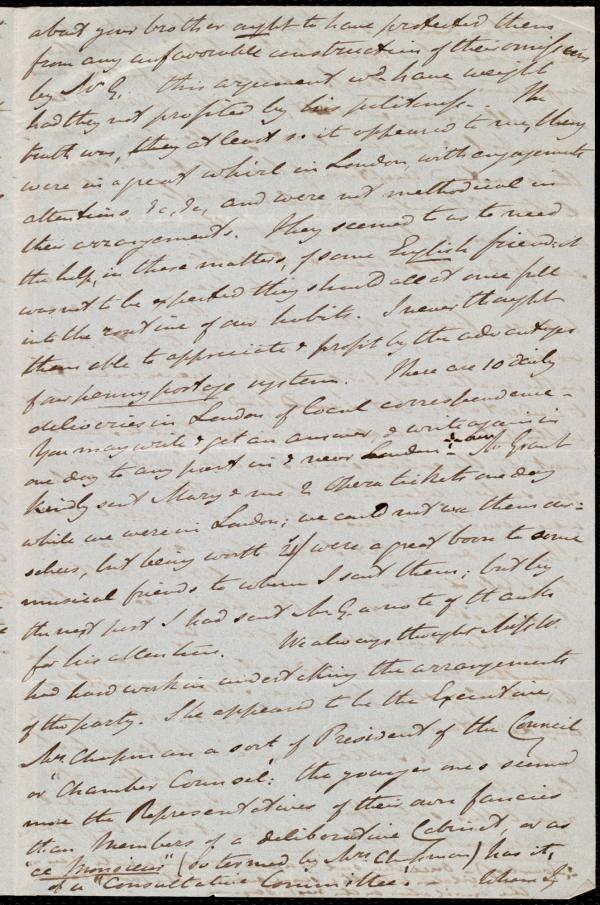 about your brother ought to have protected them
from any unfavorable construction of their omission
by Mr G. this argument wd. have weight
had they not profited by his politeness. The
truth was, they at least so it appeared to me, they
were in a great whirl in London with engagements
attentions, &c, &c, and were not methodical in
their arrangements. They seemed to us to need
the help, in these matters, of some English friend: it
was not to be expected they should all at once fall
into the routine of our habits. I never thought
them able to appreciate & profit by the advantages
of our penny postage system. There are 10 daily
deliveries in London of local correspondence -
You may write & get an answer & write again in
one day to any part in & near London. Mr Grant
kindly sent Mary & me 2 Opera tickets one day
while we were in London; we could not use them our=
selves, but being worth were a great boon to some
musical friends to whom I sent them; but by
the next post I had sent Mr G. a note of thanks
for his attention. We always thought Miss W
had hard work in undertaking the arrangements
of the party. She appeared to be the Executive
Mrs Chapman a sort of President of the Council
or "Chamber Counsel": the younger ones seemed
more the Representatives of their own fancies
than Members of a deliberative Cabinet, or as
"ce Monsieur" (so termed by Mrs Chapman) has it,
of a "Consultative Committee".